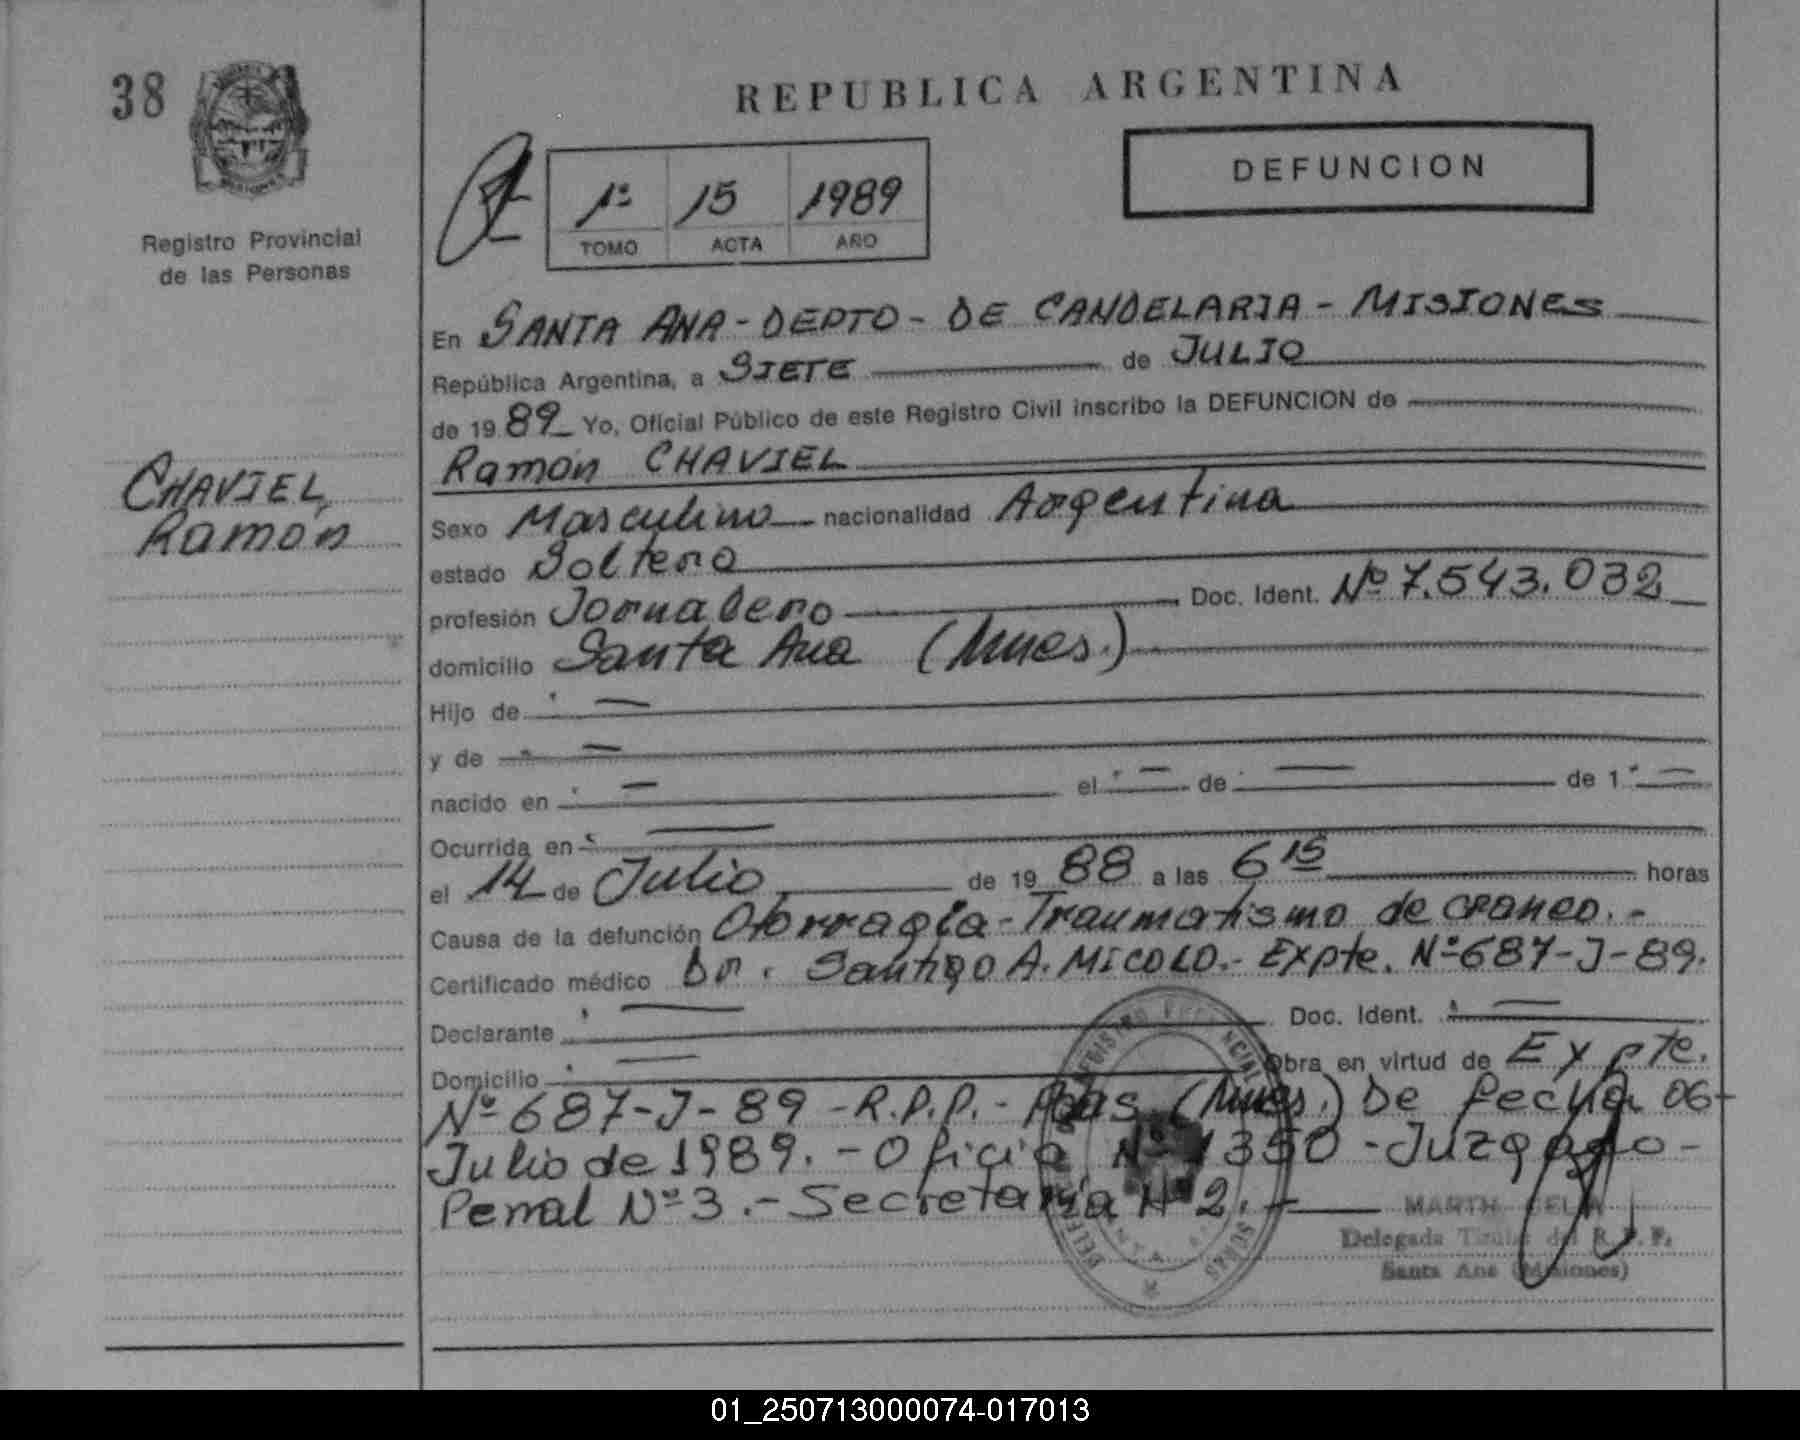 38
REPUBLICA ARGENTINA
DEFUNCION
1º 15 1989
TOMO ACTA AÑO
Registro Provincial
de las Personas
En SANTA ANA - DEPTO - DE CANDELARIA - MISIONES
República Argentina, a SIETE de JULIO
de 19 89 Yo, Oficial Público de este Registro Civil inscribo la DEFUNCION de
Ramón CHAVIEL
CHAVIEL,
Ramón
Sexo Masculino nacionalidad Argentina
estado Soltero
profesión Jornalero Doc. Ident. Nº 7.543.032
domicilio Santa Ana (Mnes.)
Hijo de
y de
nacido en el de de 1
Ocurrida en
el 14 de Julio de 19 88 a las 6 15 horas
Causa de la defunción Otorragia - Traumatismo de craneo. -
Certificado médico Dr. Santigo A. MICOLO. - Expte. Nº 687-J-89.
Declarante Doc. Ident.
Domicilio Obra en virtud de Expte.
Nº 687-J-89 - R.P.P. - Pdas (Mnes.) De fecha 06-
Julio de 1989. - Oficio Nº 1350 - Juzgado -
Penal Nº 3. - Secretaria Nº 2. -
Delegada Titular del R. P. P.
Santa Ana (Misiones)
01_250713000074-017013